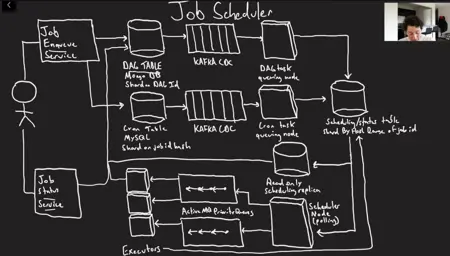 Job Scheduler
Job
Enqueue
Service
DAG TABLE
Mongo DB
Shard on DAG Id
KAFKA CDC
DAG task
queuing node
Cron Table
MySQL
Shard on job id hash
KAFKA CDC
Cron task
queuing node
Scheduling/status table
Shard By Hash Range of job id
Job
Status
Service
Read only
Scheduling replica
Active MQ Priority Queues
Scheduler
Node
(polling)
Executors